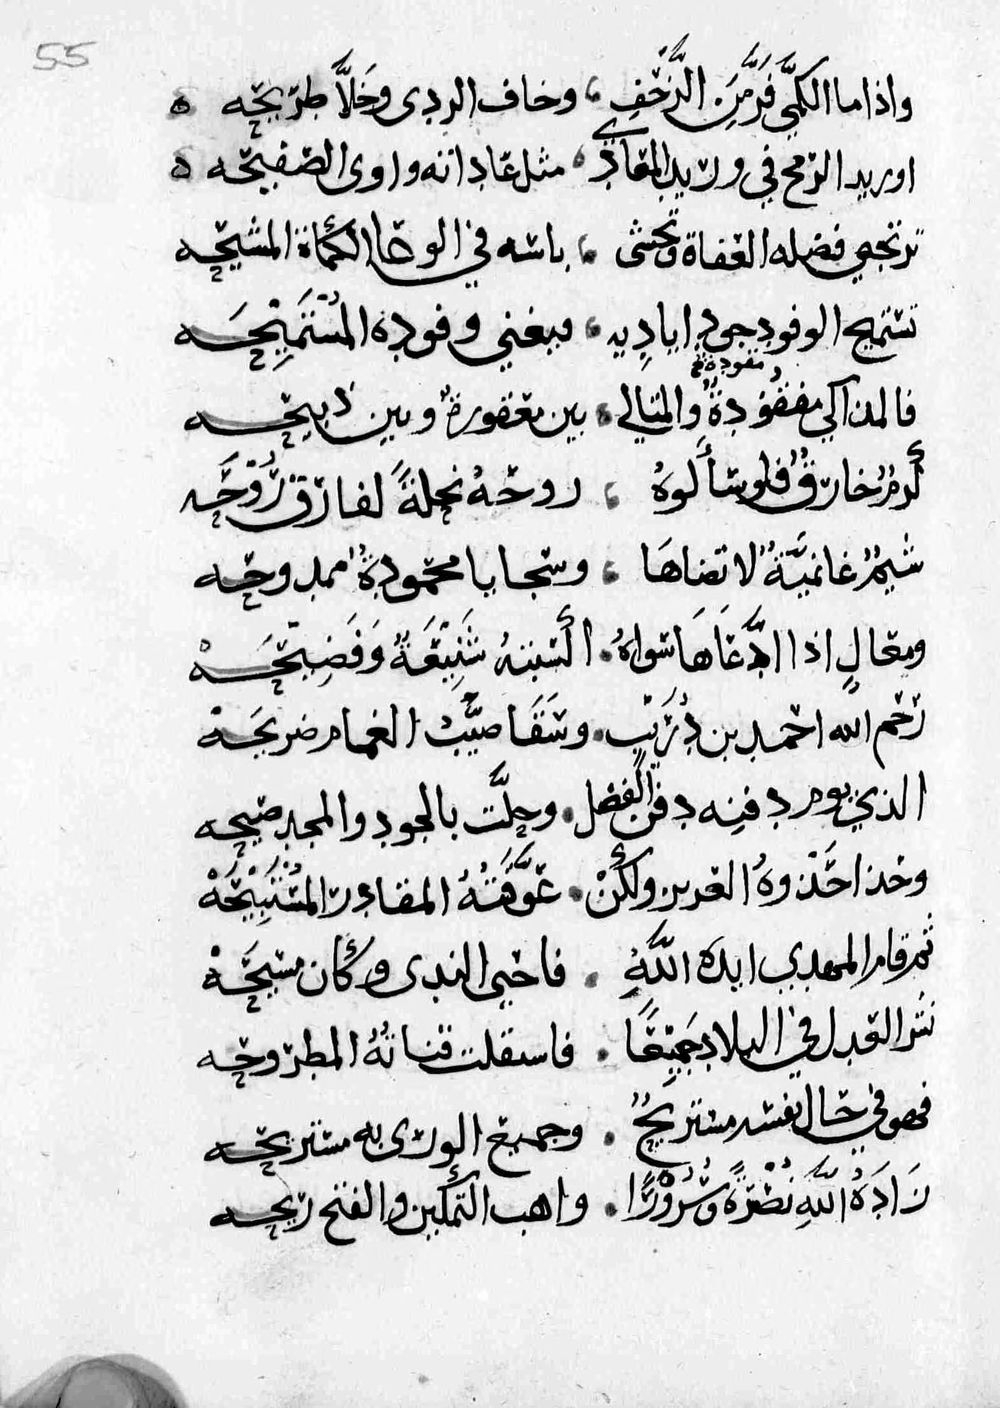 55
واذا ما الكمّي فَرَّ مِنَ الزَّحْفِ، وخاف الردى وخَلاَّ طريحه ه
اوريد الرمح في وريد المعادي، مثل عاداته واوى الصفيحه ه
ترتجي فضله العفاة وتخشى، باسه في الوغا الكماة المشيحه
تستميح الوفود جود اياديه، فيغني وفوده المُسْتَمِيْحَه
منقودة خ
فالمذاكي مفقودةٌ والمتالي، بين معقورةٍ وبين ذبيحه
كَرمٌ خارقٌ فلو سألوهُ، روحهُ نحلةً لفارق رُوْحَه
شيمٌ غانميَّةٌ لا تضاهَا، وسجايا محمودةٌ ممدوحه
ومعالٍ اذا ادَّعَاهَا سواهُ. ألسنهُ شَنِيْعَةٌ وَفَضِيْحَهْ
رحم الله احمد بن دُرَيْبٍ. وسَقَا صَيِّبُ الغمام ضريحَهْ
الذي يوم دفنه دفن الفضل. وحلَّت بالجود والمجد صيحه
وحذا حَذْوهُ العزيز ولكنْ. عَوَّقَتْهُ المقادر المُتْتَبِيْحَهْ
ثم قام المهدي ايده اللهُ. فاحيى الندى وكان مسيحَهْ
نشر العدل في البلاد جَمِيْعًا. فاستقلت قناتهُ المطروحه
فهو في حال نفسه مستريحٌ. وجميع الورى به مستريحه
زَادَهُ اللهُ نُصْرَةً وسُرُوْرًا. واهب التمكين والفتح ريحه